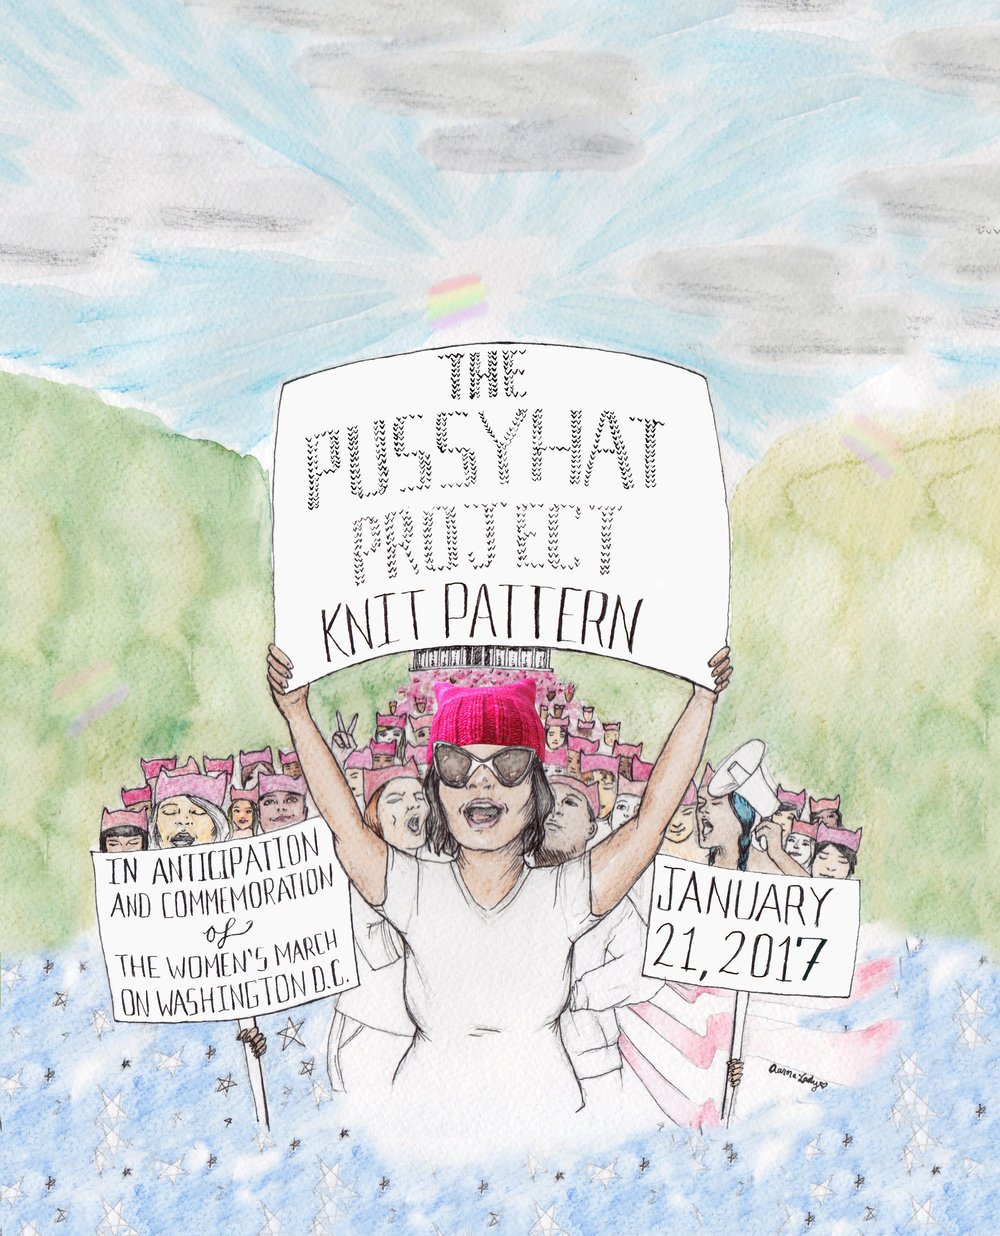 THE
PUSSYHAT
PROJECT
KNIT PATTERN
IN ANTICIPATION
AND COMMEMORATION
of
THE WOMEN'S MARCH
ON WASHINGTON D.C.
JANUARY
21, 2017